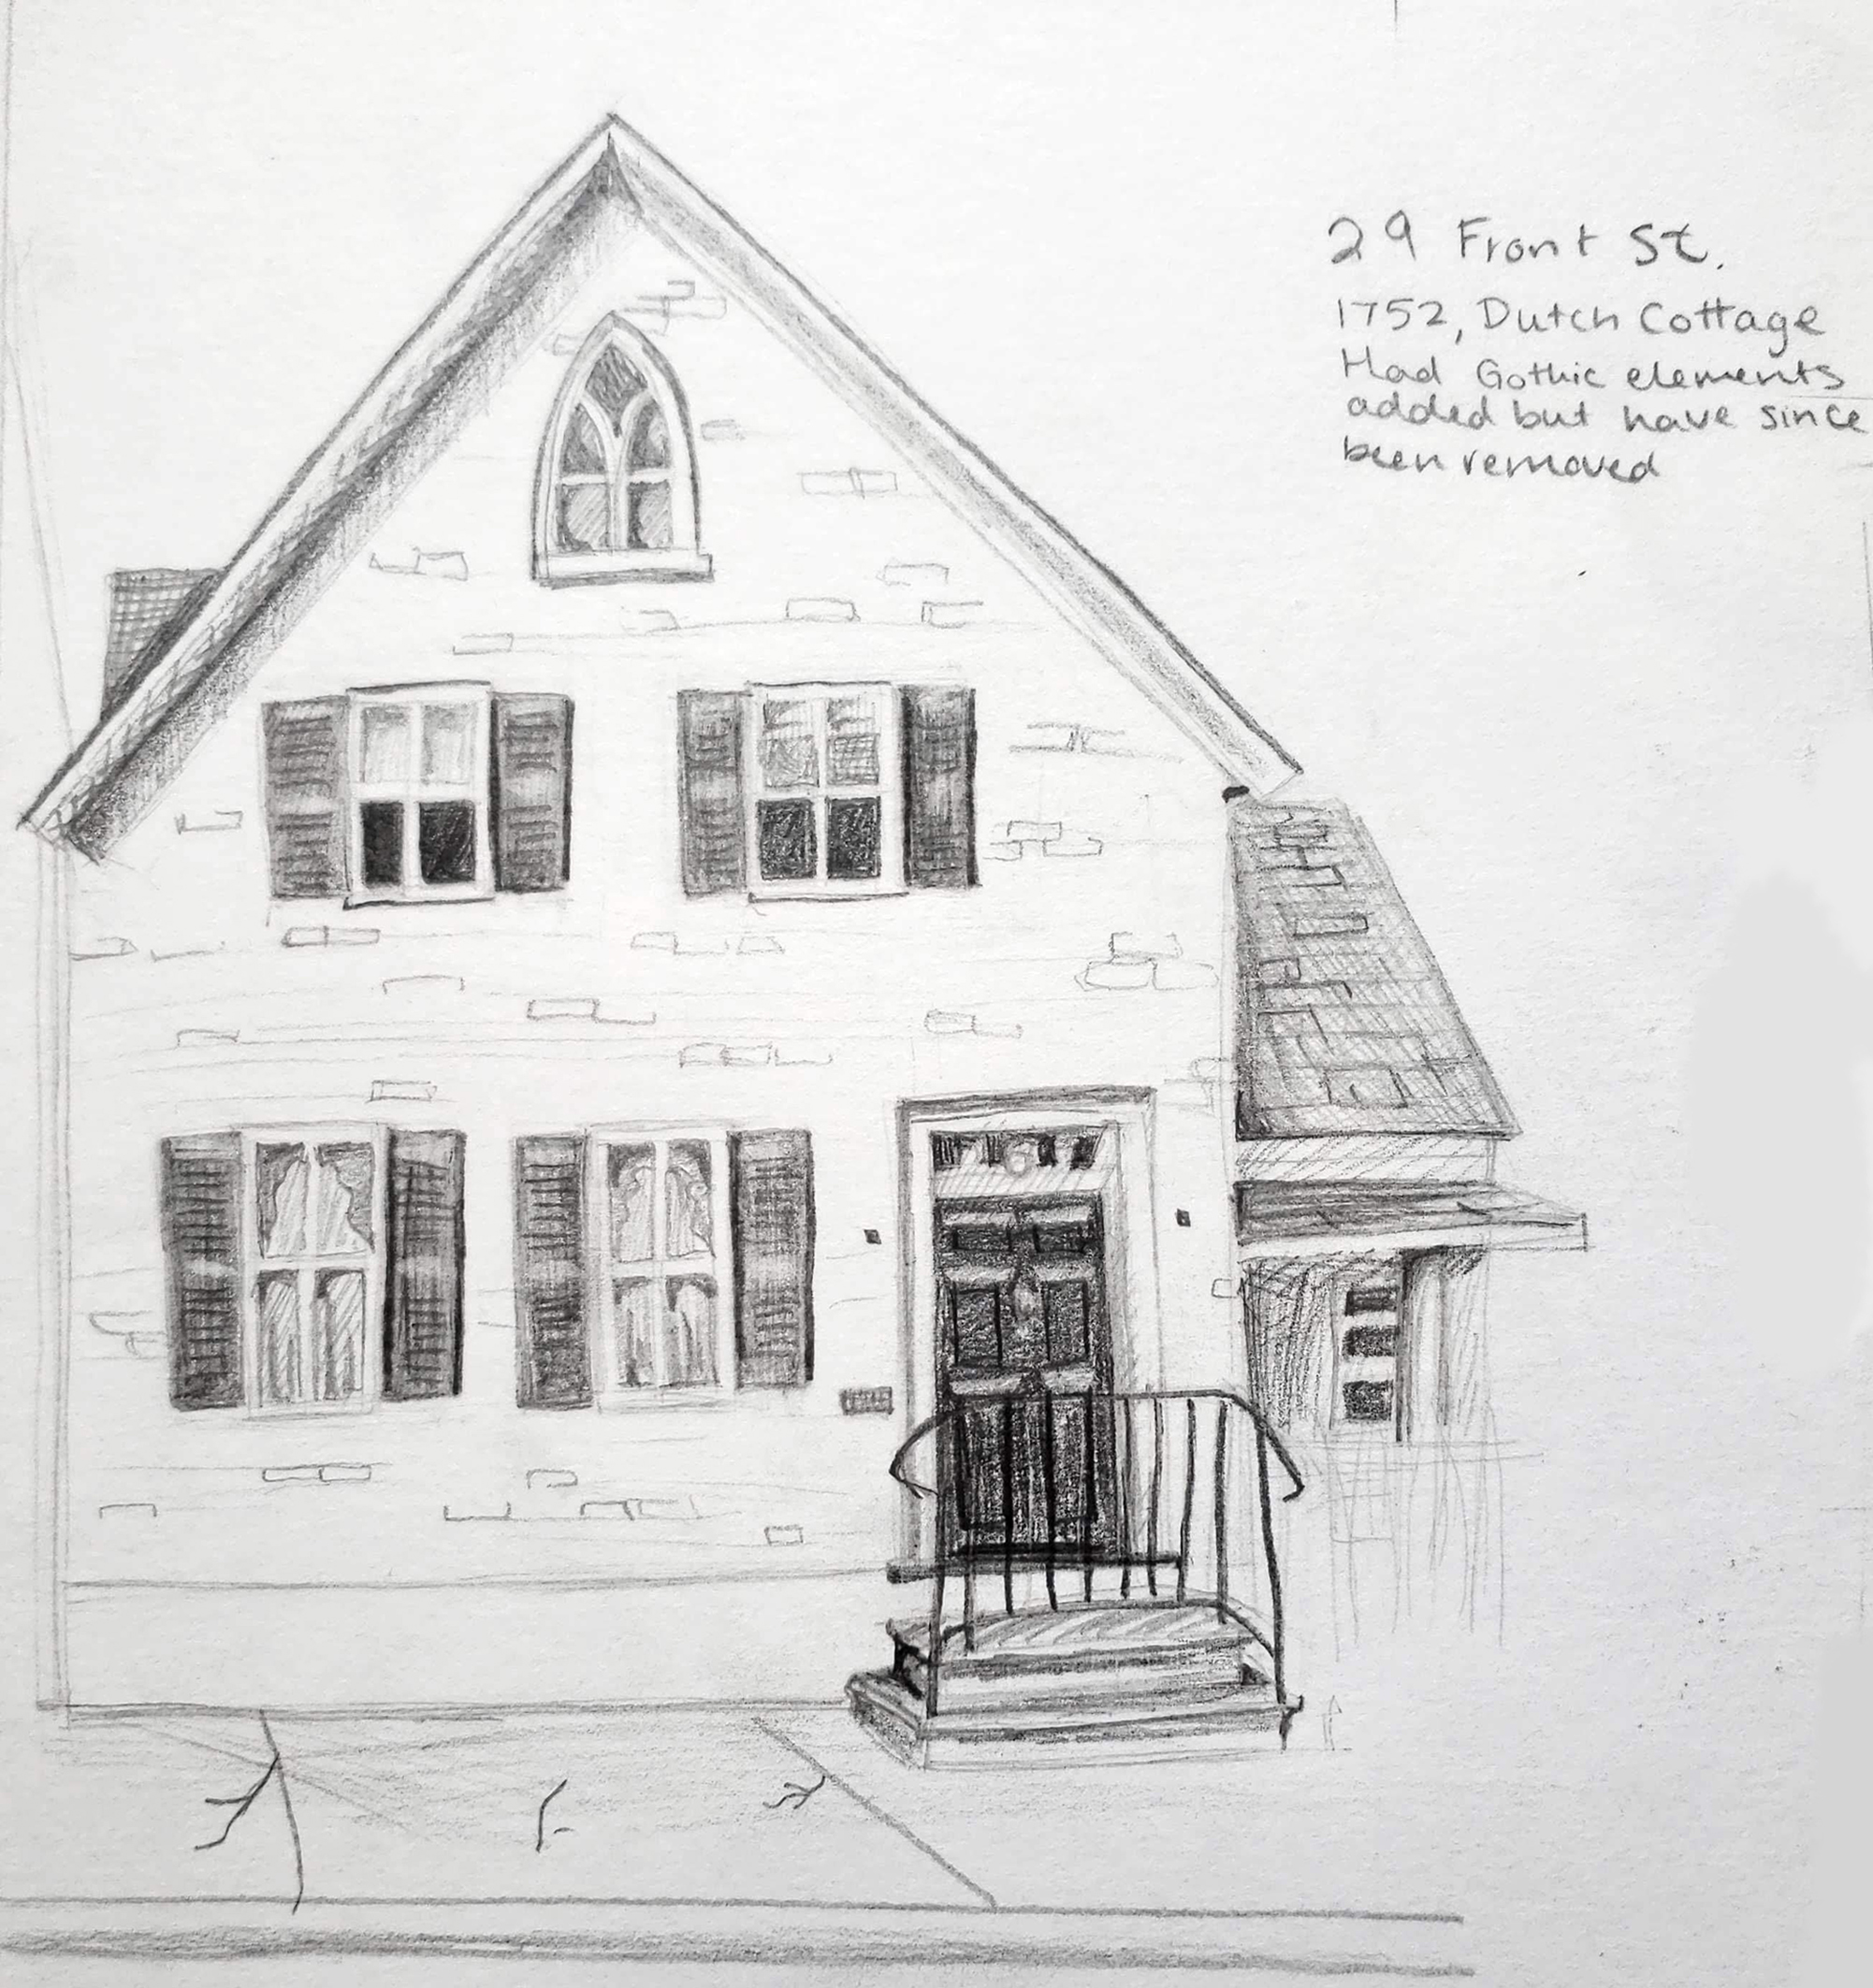 29 Front St.
1752, Dutch Cottage
Had Gothic elements
added but have since
been removed